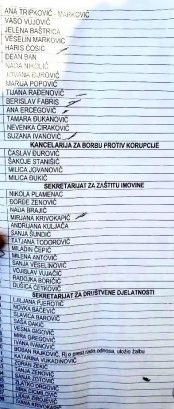 ANA TRIPKOVIĆ - MARKOVIĆ
VASO VUJOVIĆ
JELENA BAŠTRICA
VESELIN MARKOVIĆ
HARIS ĆOSIĆ
DEAN BAN
NADA NIKOLIĆ
JOVANA ĐUROVIĆ
MARIJA POPOVIĆ
TIJANA RAĐENOVIĆ
BERISLAV FABRIS
ANA ERCEGOVIĆ
TAMARA ĐUKANOVIĆ
NEVENKA ĆIRAKOVIĆ
SUZANA IVANOVIĆ
KANCELARIJA ZA BORBU PROTIV KORUPCIJE
ČASLAV ĐUROVIĆ
ŠAKOJE STANIŠIĆ
MILICA JOVANOVIĆ
MILICA ĐUKIĆ
SEKRETARIJAT ZA ZAŠTITU IMOVINE
NIKOLA PLAMENAC
ĐORĐE ZENOVIĆ
NAĐA BRAJIĆ
MIRJANA KRIVOKAPIĆ
ANDRIJANA KULJAČA
SANJA ŠUNDIĆ
TATJANA TODOROVIĆ
MLAĐEN ČEPIĆ
MILENA ANTOVIĆ
SANJA VESELINOVIĆ
VOJISLAV VUJAČIĆ
RADOJKA ĐORĐIĆ
DUŠICA ČETKOVIĆ
SEKRETARIJAT ZA DRUŠTVENE DJELATNOSTI
LJILJANA PJEROTIĆ
NOVKA BAČEVIĆ
SLAVICA BAROVIĆ
SAŠA DAKIĆ
VESNA GIGOVIĆ
MIRA GREGOVIĆ
IVANA IVANOVIĆ
BOBAN RAJKOVIĆ, Rj o prest.rada odnosa, uložio žalbu
KATARINA VUKADINOVIĆ
ZORAN ZEKIĆ